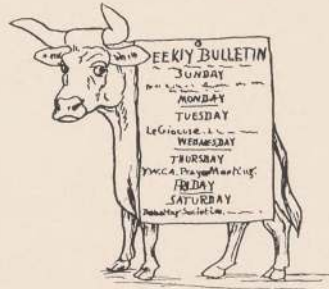 EEKLY BULLETIN
SUNDAY
MONDAY
TUESDAY
WEDNESDAY
THURSDAY
Y.W.C.A. Prayer Meeting.
FRIDAY
SATURDAY
Debating Societies